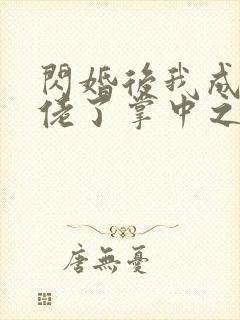 閃婚後我成
佬了掌中之
唐無憂